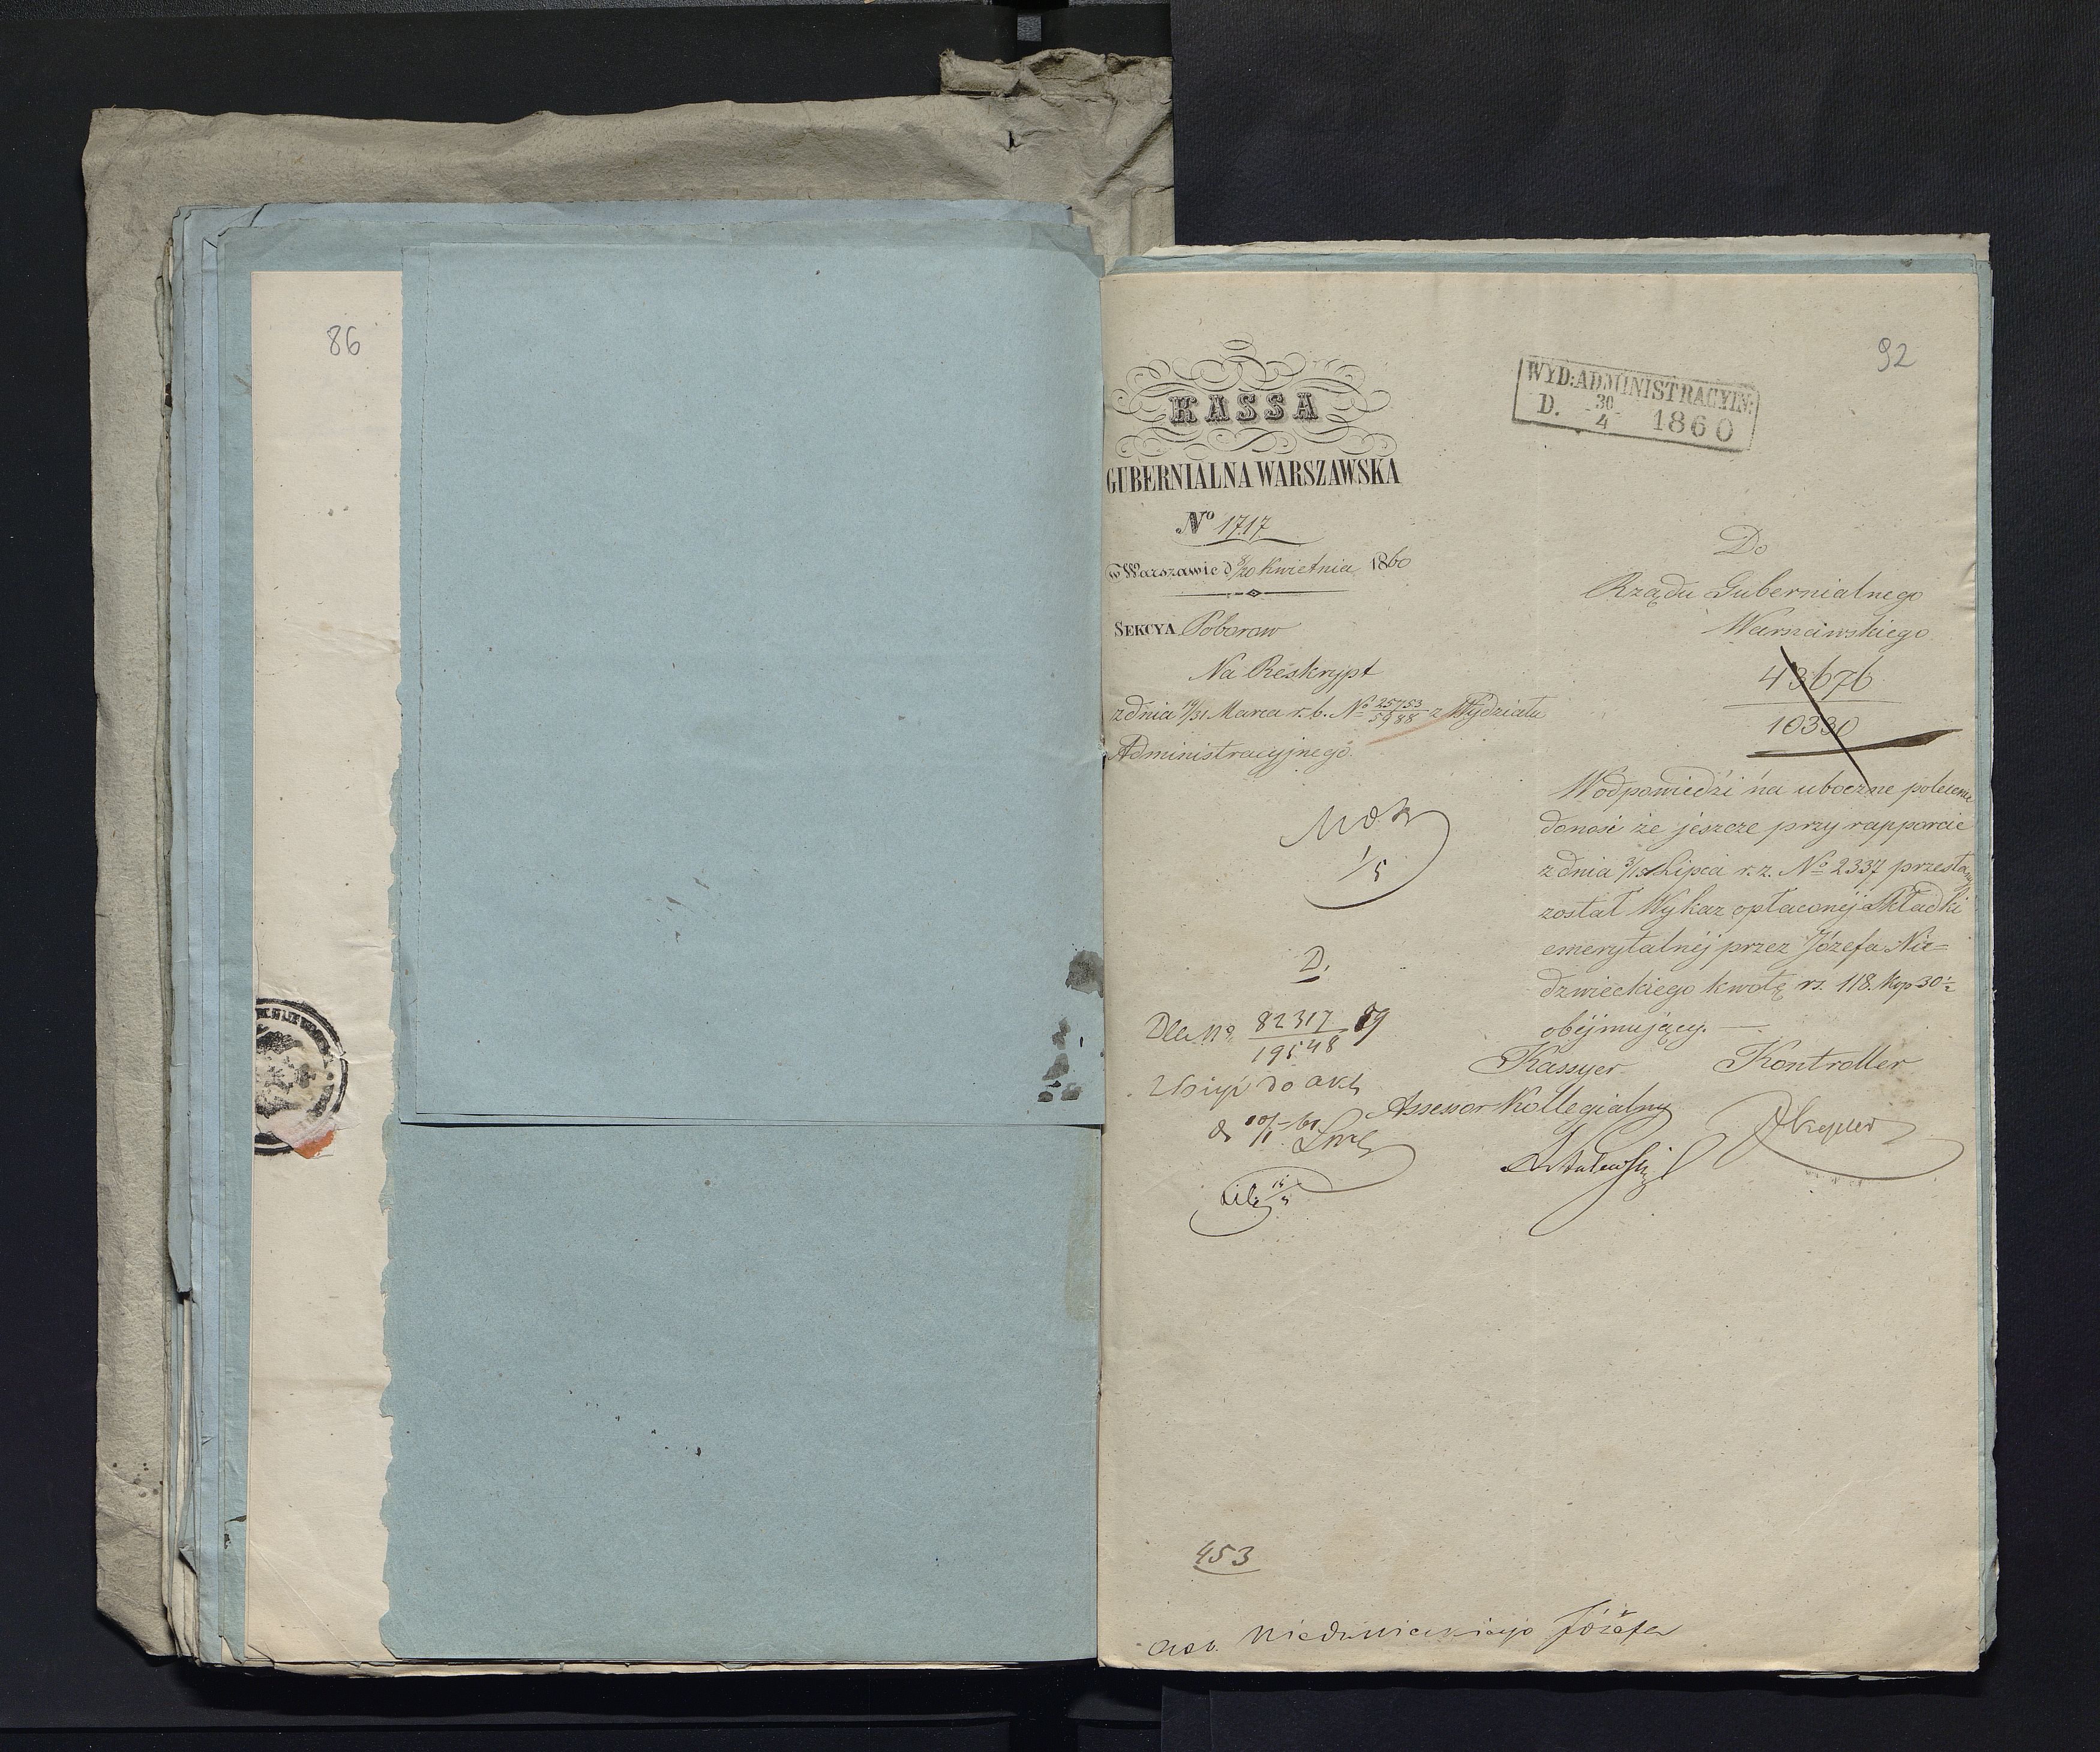 86
92
WYD: ADMINISTRACYJN:
D. 30/4 1860
KASSA
GUBERNIALNA WARSZAWSKA
No 1717
w Warszawie d 8/20 Kwietnia 1860
SEKCYA Poborow
Na Reskrypt
z dnia 19/31 Marca r. b. No 25753/5988 z Wydziału
Administracyjnego.
Do
Rządu Gubernialnego
Warszawskiego
43676
10330
W odpowiedzi na uboczne polecenie
donosi że jeszcze przy rapporcie
z dnia 3/15 Lipca r. z. No 2337 przesłany
został Wykaz opłaconéj Składki
emerytalnéj przez Józefa Nie=
dzwieckiego kwotę rs. 118. kop 30½
obéjmujący. —
Kassyer Kontroller
Assessor Kollegialny
1/5
D.
Dla No 82317/19548 59
Użyć do akt
453
Niedzwieckiego Józefa